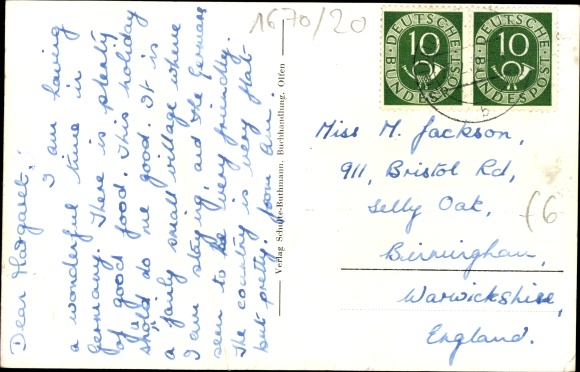 1670/20
DEUTSCHE
10
BUNDESPOST
DEUTSCHE
10
BUNDESPOST
b
Dear Margaret,
I am having
a wonderful time in
Germany. There is plenty
of good food. This holiday
shold do me good. It is
a fairly small village where
I am staying, and the Germans
seem to be very friendly.
The country is very flat
but pretty. from Ann.
Verlag Schulte-Bothmann, Buchhandlung, Olfen
Miss M. Jackson,
911, Bristol Rd,
Selly Oak,
Birmingham,
Warwickshire,
England.
f6